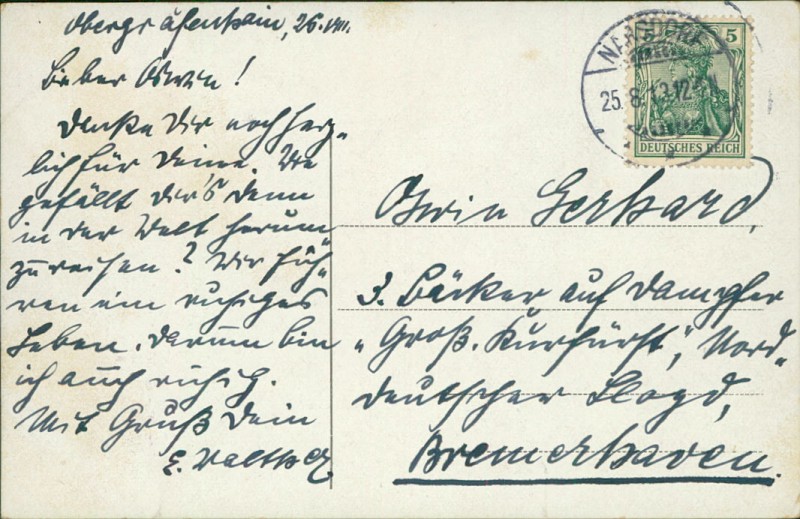 Obergräfenhain, 26. VIII.
Lieber Oswin!
Danke Dir noch herz-
lich für Deine. Wie
gefällt dir's denn
in der Welt herum-
zureisen? Wir füh-
ren ein ruhiges
Leben. Darum bin
ich auch ruhig.
Mit Gruß Dein
E. Walther
NARSDORF
25.8.13.12
5 5
DEUTSCHES REICH
Oswin Gerhard,
3. Bäcker auf Dampfer
„Groß. Kurfürst", Nord-
deutscher Lloyd,
Bremerhaven.